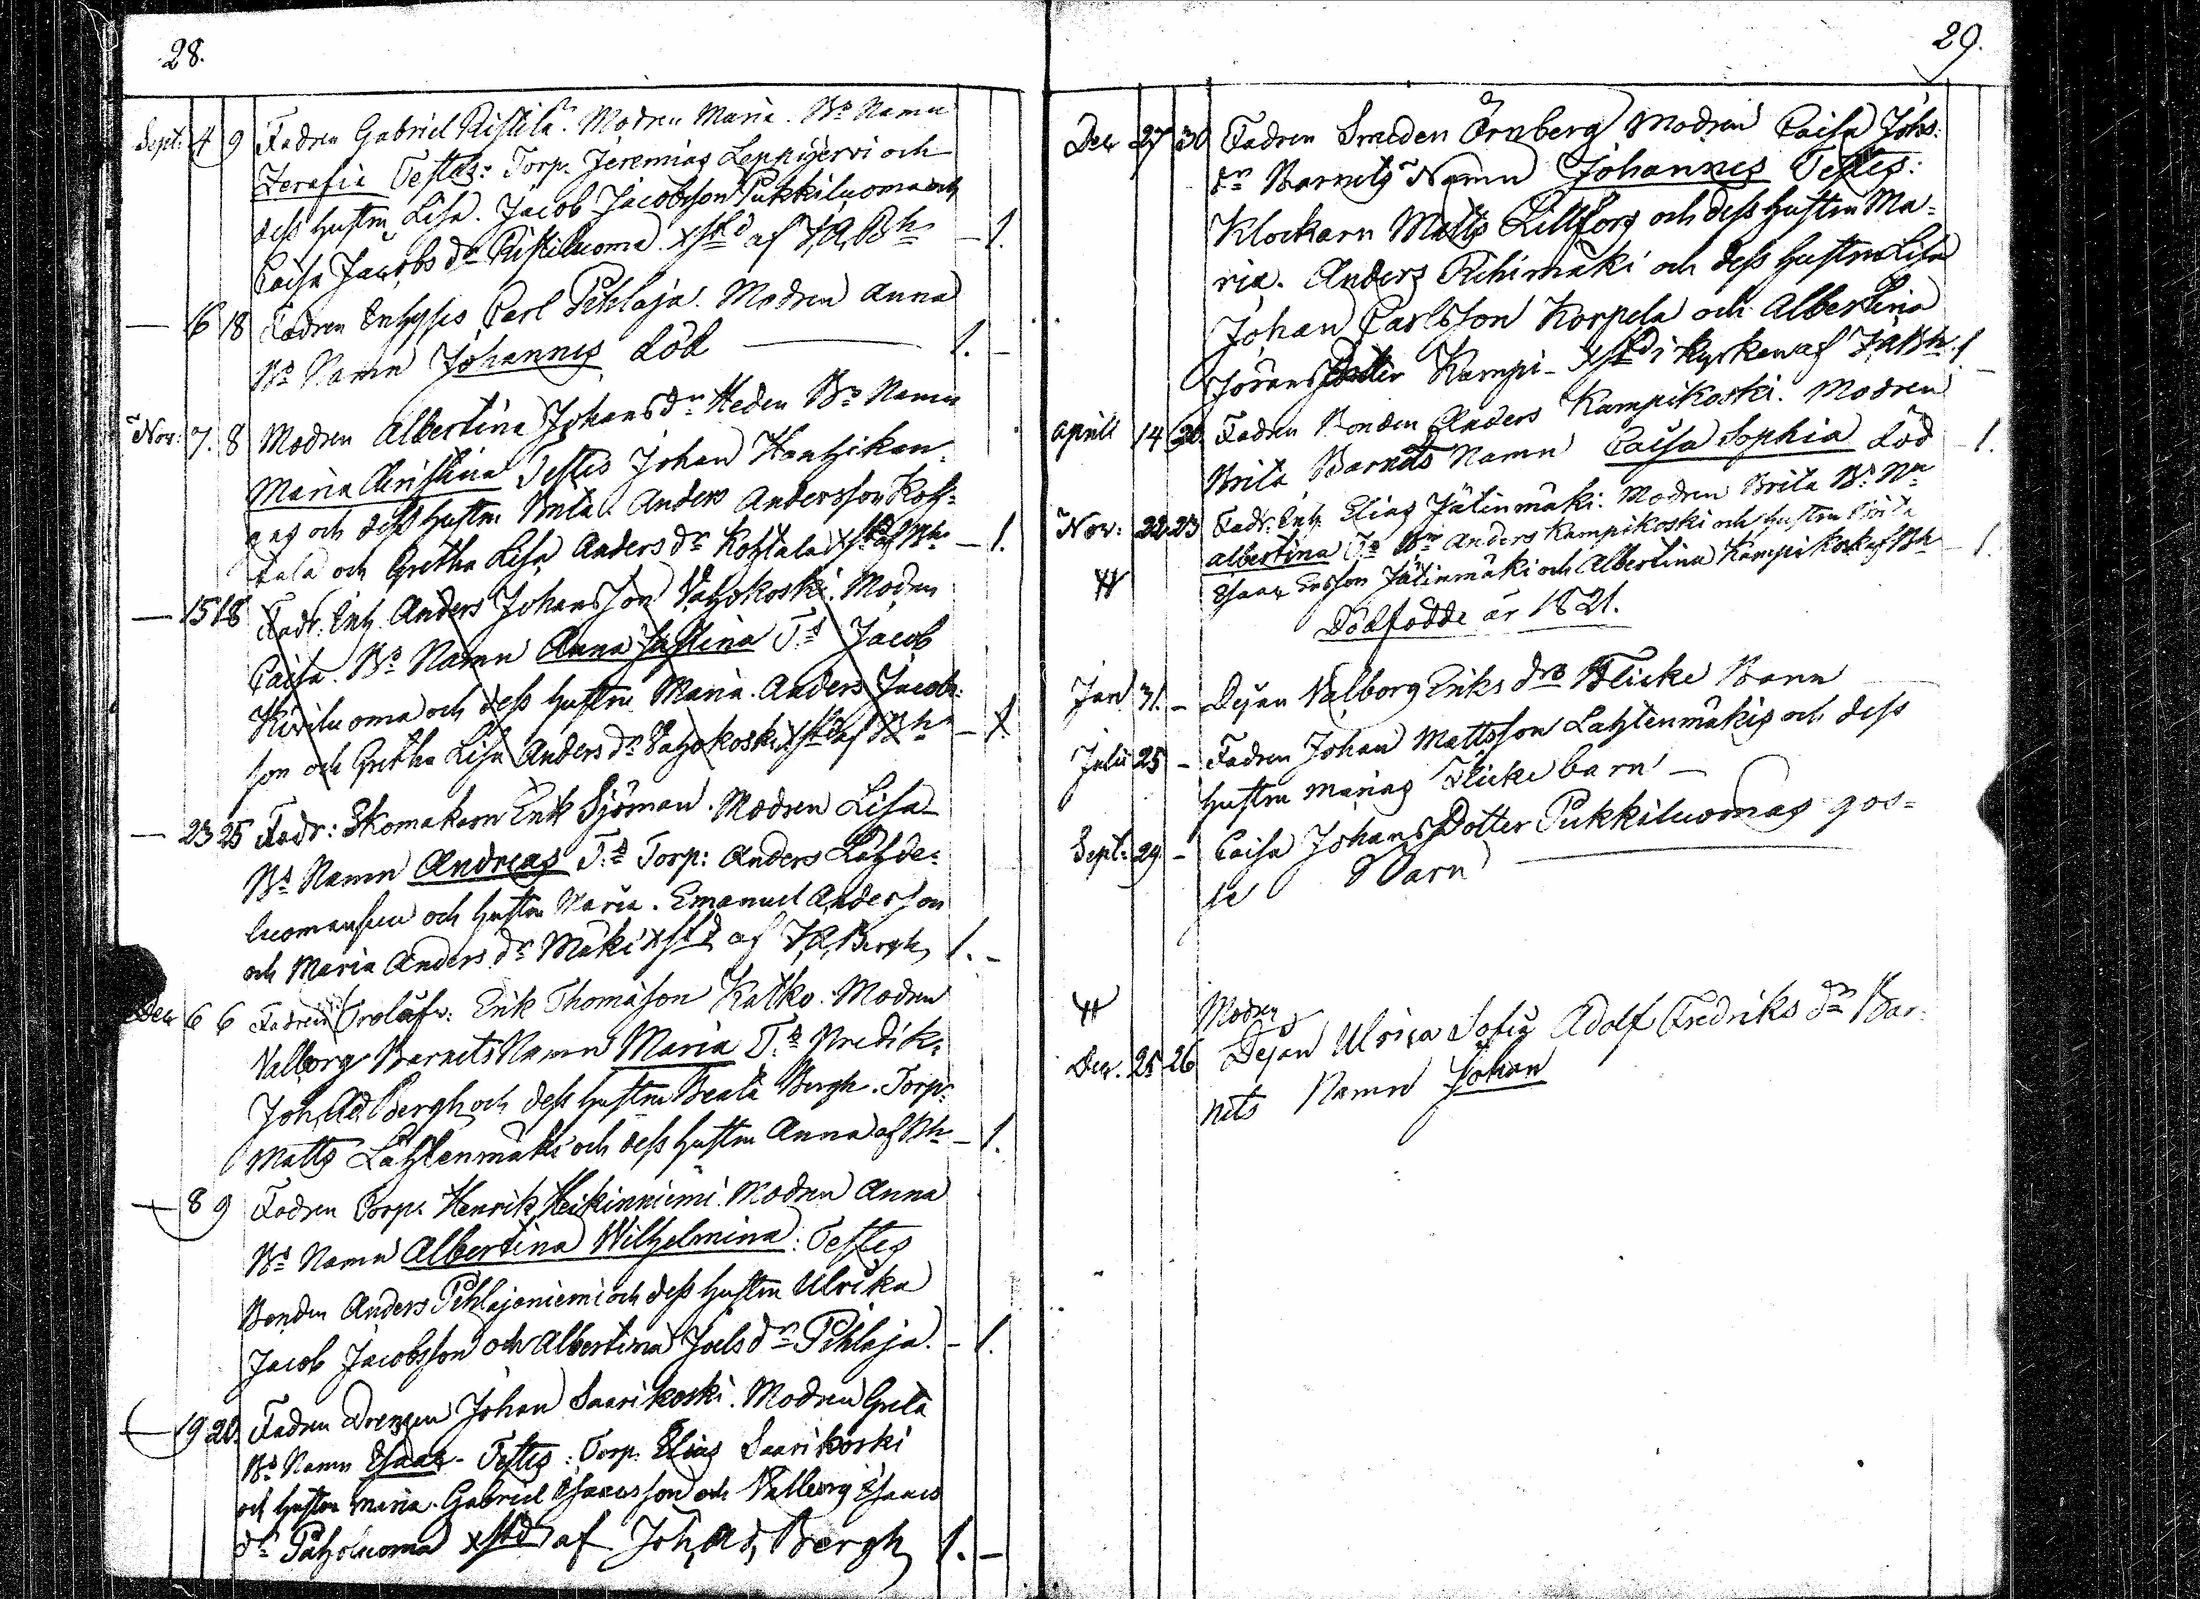 28.
Sept: 4 9 Fadren Gabriel Ristila. Modren Maria. Bs Namn
Serafia Testes: Torp. Jeremias Leppijervi och
dess hustru Lisa. Jacob Jacobsson Pukkiluoma och
Caisa Jacobs dr Ristiluoma xstd af J.A.Bh — 1.
— 16 18 Fadren Inhyses Carl Pihlaja. Modren Anna
Bs Namn Johannes död — 1. —
Nov: 7. 8 Modren Albertina Johans dr Heden Bs Namn
Maria Christina Testes Johan Hautzikan-
gas och dess hustru Brita. Anders Andersson Kos-
tala och Gretha Lisa Anders dr xstd af Bh — 1.
— 15 18 Fadr. Inh. Anders Johansson Modren
Caisa. Bs Namn Anna Justina Ts Jacob
Kiviluoma och dess hustru Maria. Anders Jacobs-
son och Gretha Lisa Anders dr xstd af Bh — 1
— 23 25 Fadr: Skomakarn Erik Sjöman. Modren Lisa
Bs Namn Andreas Ts Torp: Anders Lähde-
och hustru Maria. Emanuel Andersson
och Maria Anders dr Mäki xstd af J.A.Bergh 1. —
Dec 6 6 Fadren Erik Thomasson Katko. Modren
Valborg Barnets Namn Maria Ts Predik:
Joh. Ad. Bergh och dess hustru Beata Bergh. Torp.
Matts Lahtenmäki och dess hustru Anna af Bh — 1.
— 8 9 Fadren Torp. Henrik Heikinniemi. Modren Anna
Bs Namn Albertina Wilhelmina: Testes
Bonden Anders Pihlajaniemi och dess hustru Ulrika
Jacob Jacobsson och Albertina Joels dr Pihlaja. — 1.
— 19 20. Fadren Drengen Johan Saarikoski. Modren Greta
Bs Namn Esaac - Testes: Torp. Elias Saarikoski
och hustru Maria. Gabriel Esaacsson och Valborg Esaacs
dr xstd af Joh. Ad. Bergh 1. —
29.
Dec 27 30 Fadren Smeden Örnberg Modren Caisa Johs:
dr Barnets Namn Johannes Testes:
Klockarn Matts Lillfors och dess hustru Ma-
ria. Anders Pihimäki och dess hustru Lisa
Johan Carlsson Korpela och Albertina
Jöransdotter Kampi - xstd i kyrkan af J.A.Bh. 1 —
Aprill 14 20 Fadren Bonden Anders Kampikoski. Modren
Brita Barnets Namn Caisa Sophia död — 1.
Nov: 22 23 Fadr. Inh. Elias Jälinmäki. Modren Brita Bs Nn
Albertina Ts Bn Anders Kampikoski och hustru Brita
Esaac Jälinmäki och Albertina Kampikoski af Bh — 1.
Dödfödde år 1821.
Jan 31. — Dejan Valborg Eriks drs Flicke Barn
Julii 25 — Fadren Johan Mattsson Lahtenmäkis och dess
hustru Marias Flicke barn —
Sept: 29. — Caisa Johans Dotter Pukkiluomas gos-
se Barn
Modren
Dec. 25 26 Dejan Ulrica Sofia Adolf Fredriks dr Bar-
nets Namn Johan